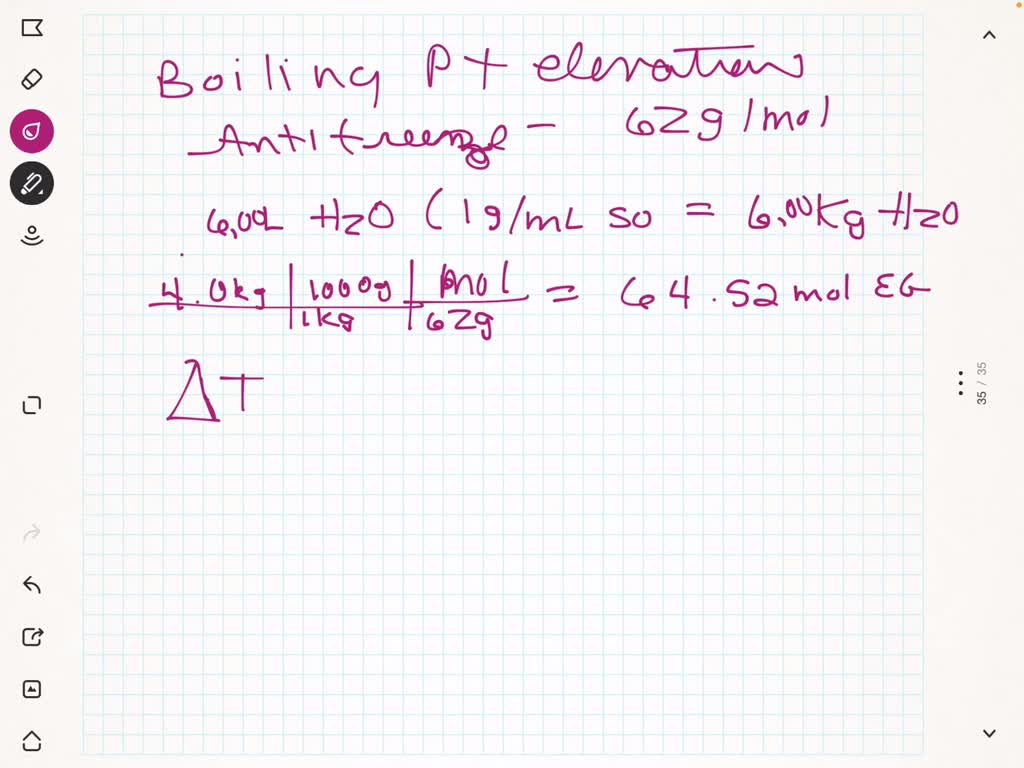 Boiling Pt elevation
Antifreeze - 62g/mol
6.00L H2O (1g/mL so = 6.00Kg H2O
4.0kg | 1000g | mol = 64.52 mol EG
1kg | 62g
ΔT
35 / 35